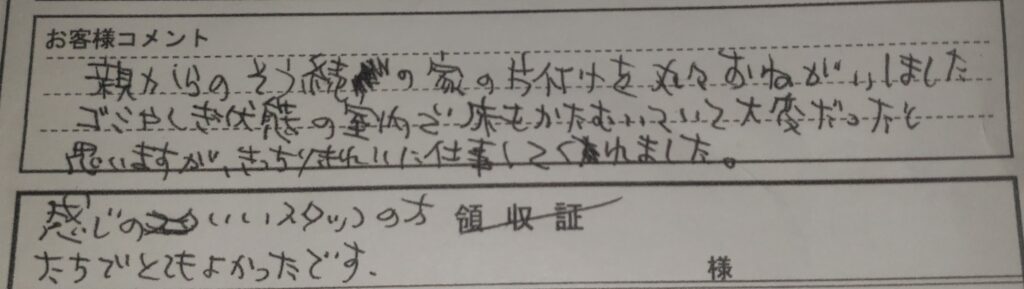 お客様コメント
親からのそう続の家の片付けをおねがいしました
ゴミやしき状態の建物で床もかたむいていて大変だったと
思いますが、きっちりきれいに仕事してくれました。
感じのいいスタッフの方 領収証
たちでとてもよかったです.
様